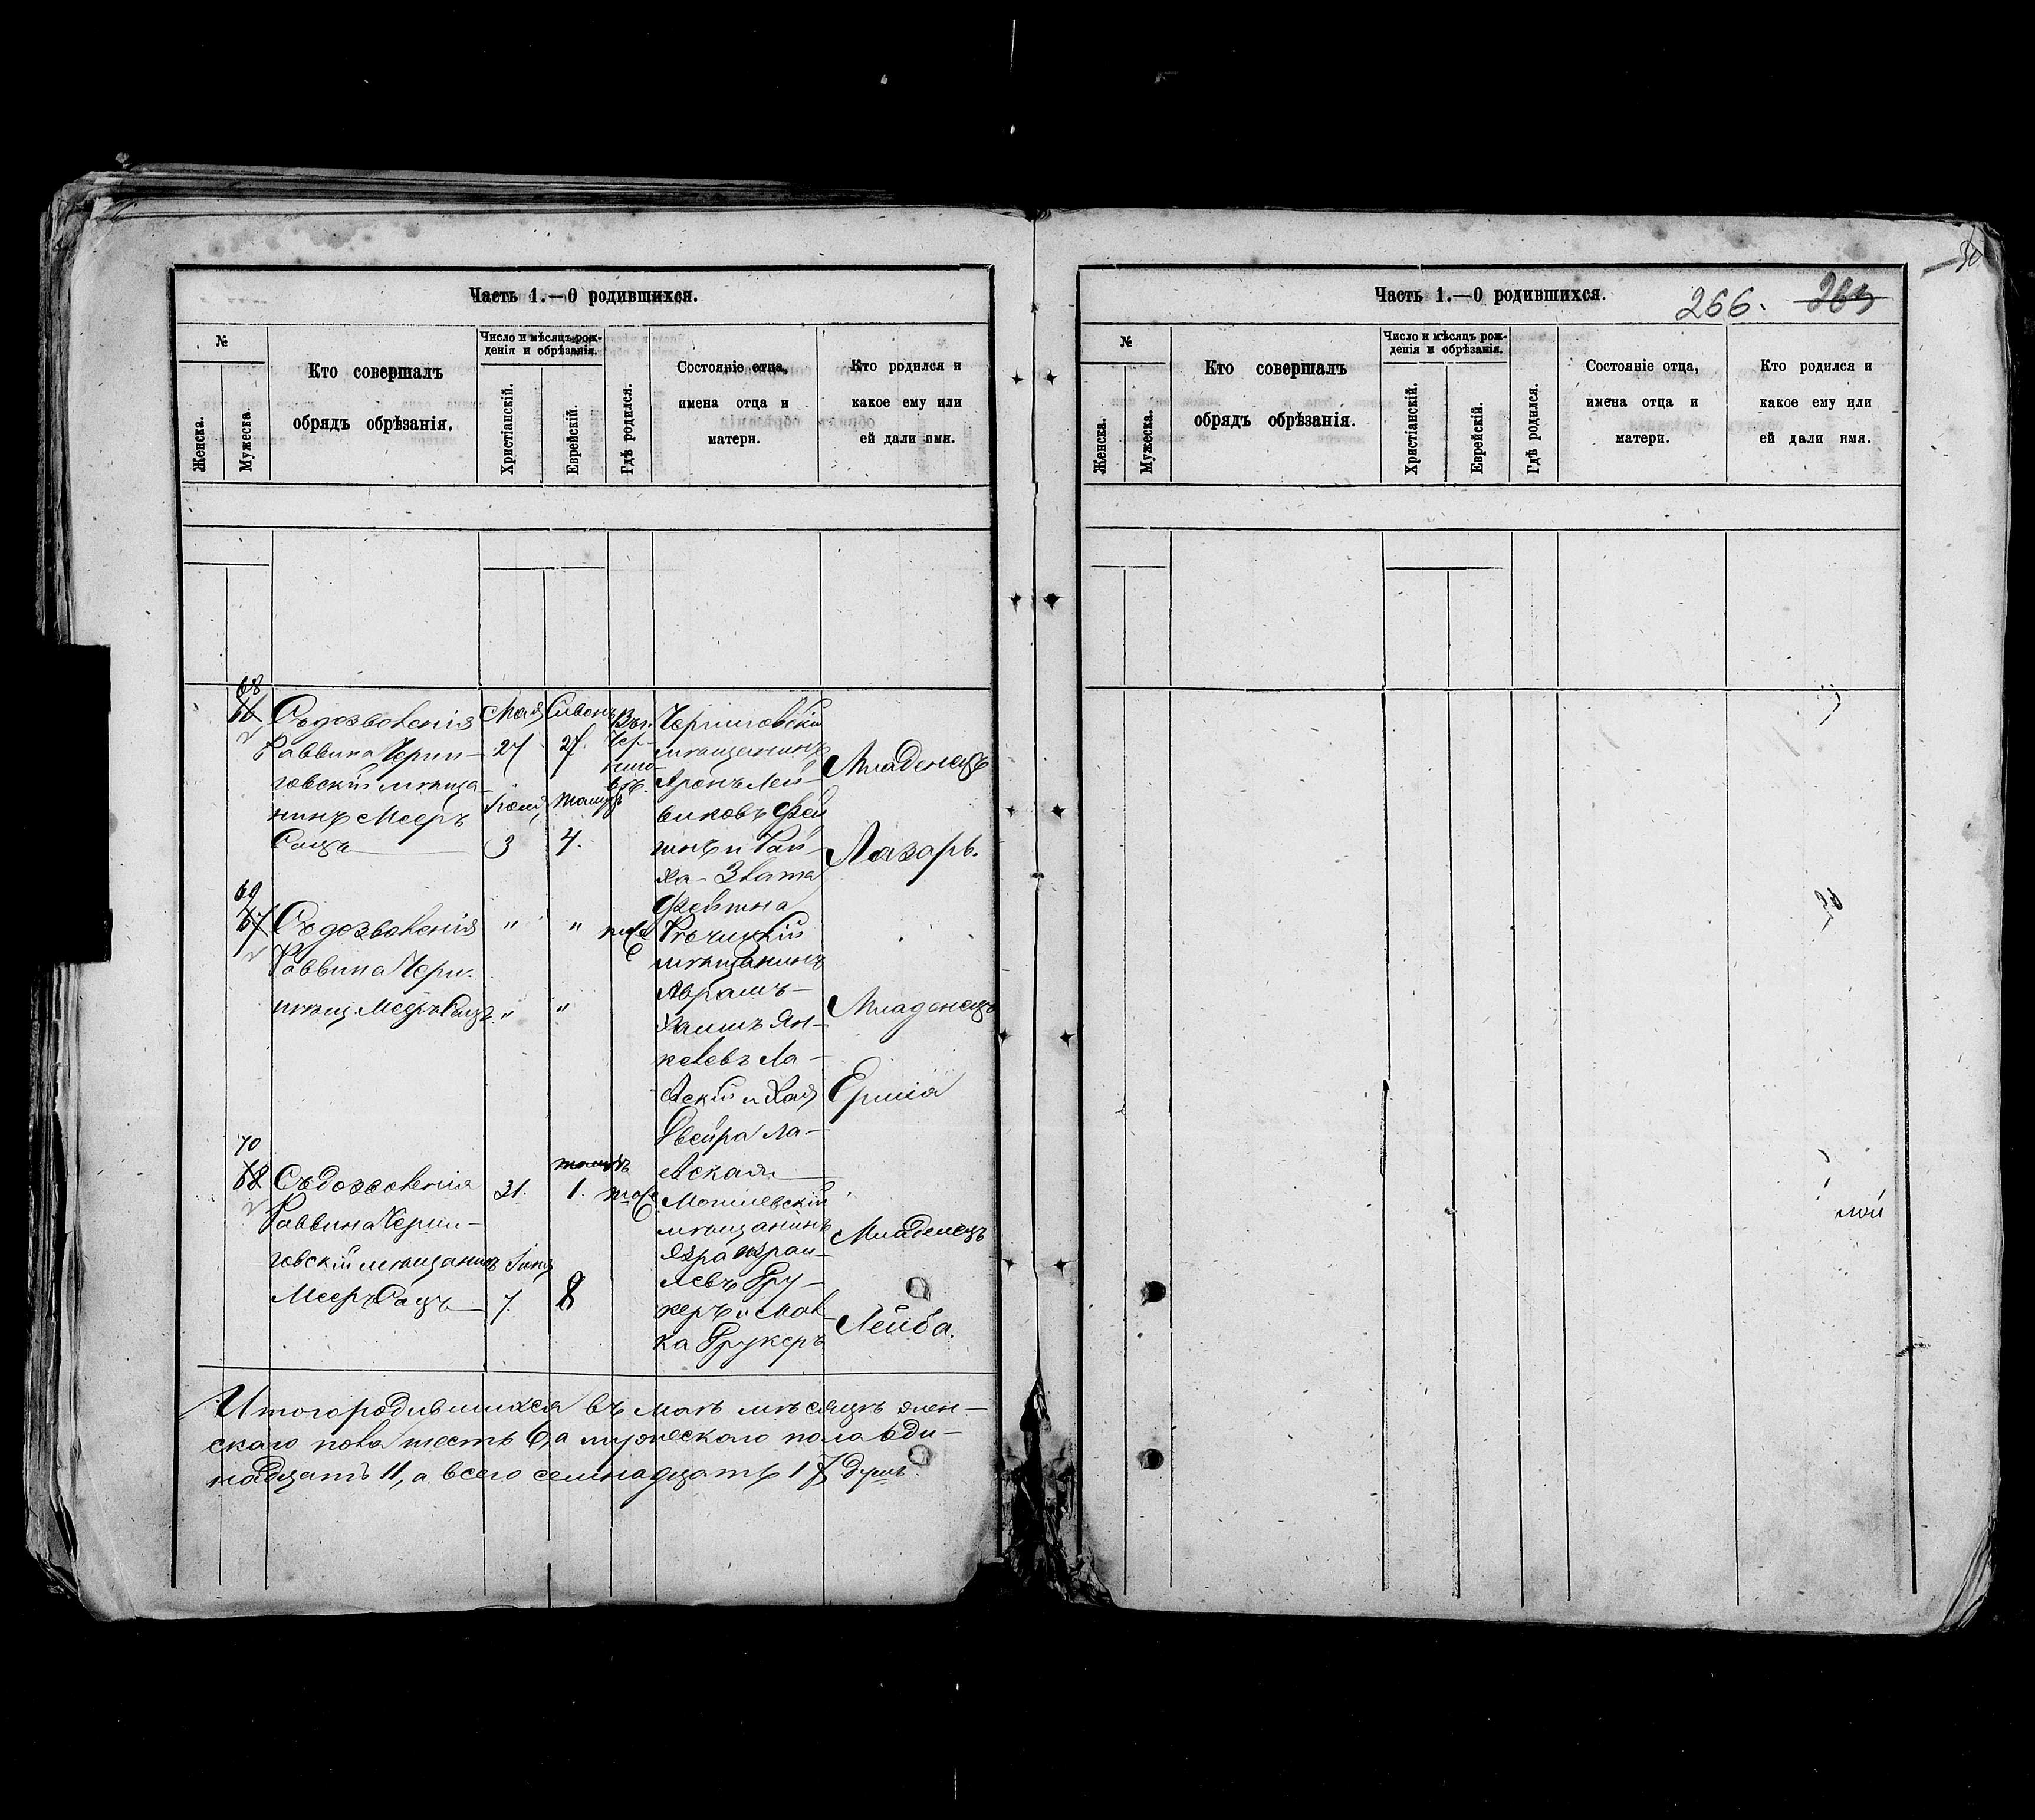 Часть 1.—О родившихся.
№
Женска.
Мужеска.
Кто совершалъ
обрядъ обрѣзанія.
Число и мѣсяцъ рож-
денія и обрѣзанія.
Христіанскій.
Еврейскій.
Гдѣ родился.
Состояніе отца,
имена отца и
матери.
Кто родился и
какое ему или
ей дали имя.
68
66
Съ дозволенія
Раввина Черни-
говскій мѣща-
нинъ Мееръ
Сацъ
Мая
27
Іюня
3
Сивонъ
27.
тамузъ
4.
Въ г.
Чер-
ниго-
вѣ.
Черниговскій
мѣщанинъ
Аронъ Лей-
виковъ Фей
гинъ и Рай-
ха-Злата
Фейгина
Младенецъ
Лазарь.
69
67
Съ дозволенія
Раввина Черн.
мѣщ. Мееръ Сацъ.
"
"
"
"
тоже
Рѣчицкій
мѣщанинъ
Абрамъ-
Хаимъ Ян-
келевъ Ла-
скій и Хая
Двейра Ла-
ская
Младенецъ
Ершія
70
68
Съ дозволенія
Раввина Черни-
говскій мѣщанинъ
Мееръ Сацъ
31.
Іюня
7.
тамузъ
1.
8
тоже
Могилевскій
мѣщанинъ
левъ
керъ и Мал-
ка
Младенецъ
Лейба.
Итого родившихся въ маѣ мѣсяцѣ жен-
скаго пола шесть 6, а мужескаго пола оди-
надцать 11, а всего семнадцать 17 душъ.
Часть 1.—О родившихся.
266.
265
№
Женска.
Мужеска.
Кто совершалъ
обрядъ обрѣзанія.
Число и мѣсяцъ рож-
денія и обрѣзанія.
Христіанскій.
Еврейскій.
Гдѣ родился.
Состояніе отца,
имена отца и
матери.
Кто родился и
какое ему или
ей дали имя.